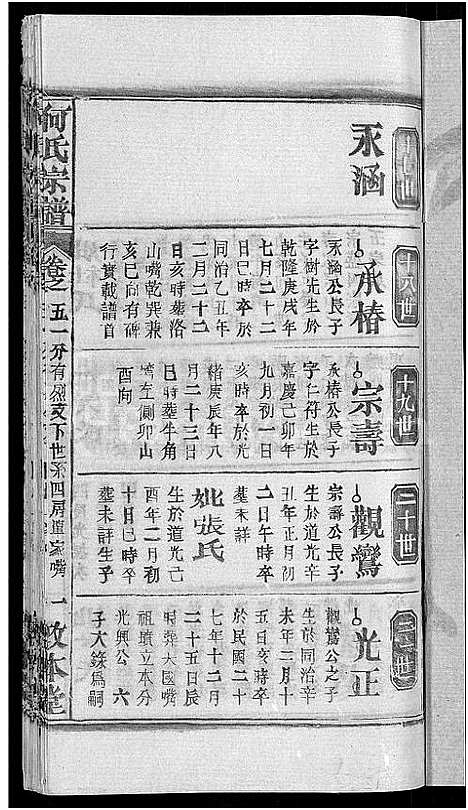 十七世
永涵
十八世
承椿
永涵公長子
字樹先生於
乾隆庚戌年
七月二十二
日巳時卒於
同治乙丑年
二月二十二
日亥時塟洛
山嘴乾巽兼
亥巳向有碑
行實載譜首
十九世
宗壽
承椿公長子
字仁符生於
嘉慶己卯年
九月初一日
亥時卒於光
緒庚辰年八
月二十三日
巳時塟牛角
塆左側卯山
酉向
二十世
觀鸞
宗壽公長子
生於道光辛
丑年正月初
二日午時卒
塟未詳
妣張氏
生於道光己
酉年二月初
十日巳時卒
塟未詳生子
光正
觀鸞公之子
生於同治辛
未年二月十
五日亥時卒
於民國二十
七年十二月
二十五日辰
時塟大國嘴
祖墳立本分
光興公 六
子大錄爲嗣
何氏宗譜
卷之五一分有烈支下世系四房道家嘴
一 敦本堂